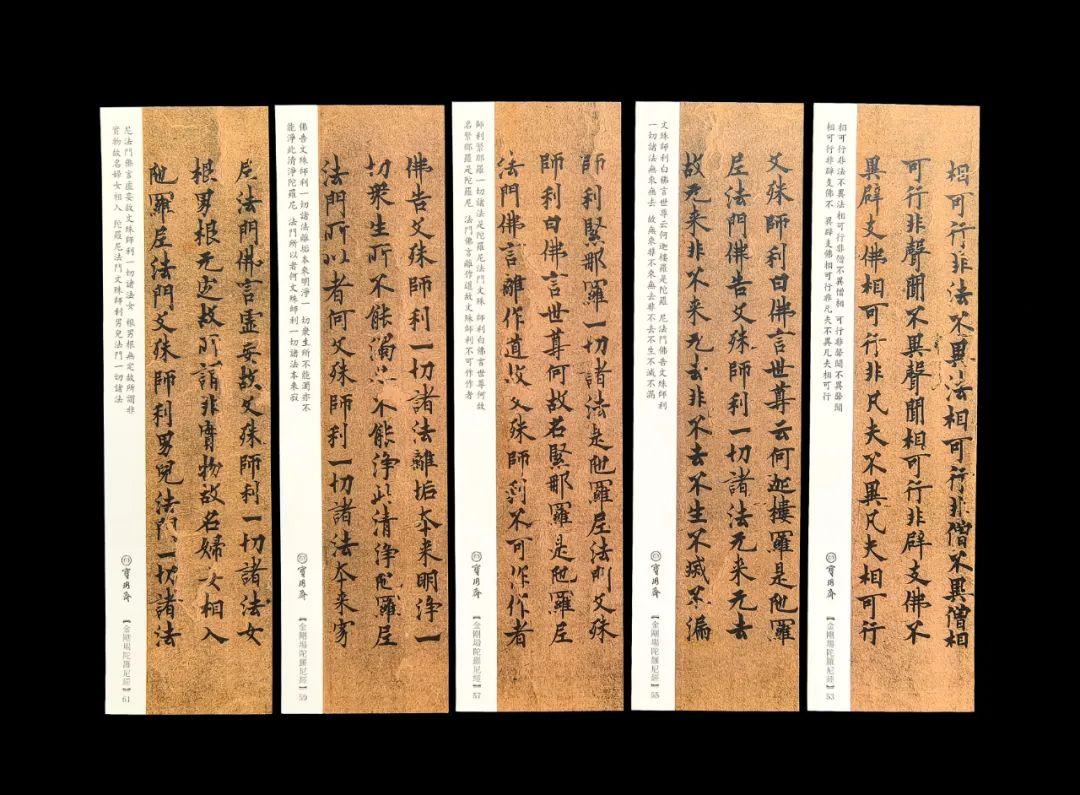 相可行非法不異法相可行非僧不異僧相
可行非聲聞不異聲聞相可行非辟支佛不
異辟支佛相可行非凡夫不異凡夫相可行
相可行非法不異法相可行非僧不異僧相 可行非聲聞不異聲聞
相可行非辟支佛不 異辟支佛相可行非凡夫不異凡夫相可行
寶月齋
【金剛場陀羅尼經】 53
文殊師利白佛言世尊云何迦樓羅是陁羅
尼法門佛告文殊師利一切諸法无来无去
故无来非不来无去非不去不生不滅不漏
文殊師利白佛言世尊云何迦樓羅是陀羅 尼法門佛告文殊師利
一切諸法無來無去 故無來非不來無去非不去不生不滅不漏
寶月齋
【金剛場陀羅尼經】 55
師利緊那羅一切諸法是陁羅尼法門文殊
師利白佛言世尊何故名緊那羅是陁羅尼
法門佛言離作道故文殊師利不可作作者
師利緊那羅一切諸法是陀羅尼法門文殊 師利白佛言世尊何故
名緊那羅是陀羅尼 法門佛言離作道故文殊師利不可作作者
寶月齋
【金剛場陀羅尼經】 57
佛告文殊師利一切諸法離垢本来明淨一
切衆生所不能濁亦不能淨此清淨陁羅尼
法門所以者何文殊師利一切諸法本来寂
佛告文殊師利一切諸法離垢本來明淨一 切衆生所不能濁亦不
能淨此清淨陀羅尼 法門所以者何文殊師利一切諸法本來寂
寶月齋
【金剛場陀羅尼經】 59
尼法門佛言虛妄故文殊師利一切諸法女
根男根无定故所謂非實物故名婦女相入
陁羅尼法門文殊師利男兒法門一切諸法
尼法門佛言虛妄故文殊師利一切諸法女 根男根無定故所謂非
實物故名婦女相入 陀羅尼法門文殊師利男兒法門一切諸法
寶月齋
【金剛場陀羅尼經】 61